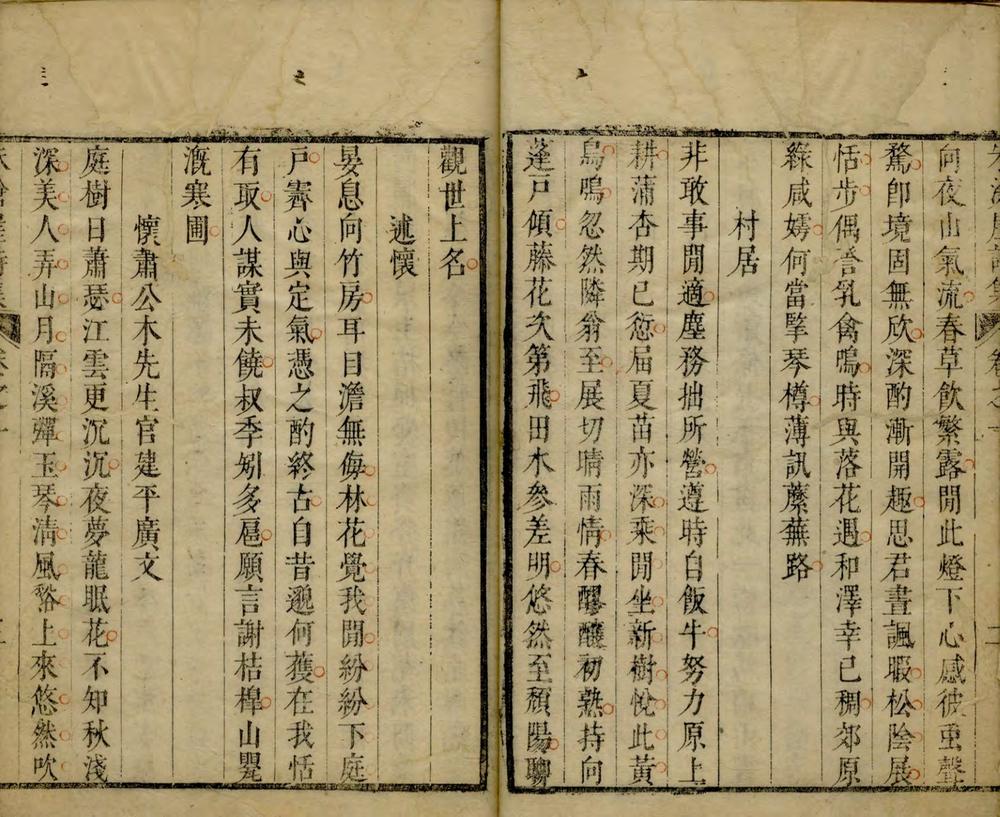 向夜山氣流春草飲繁露閒此燈下心感彼虫聲
騖卽境固無欣深酌漸開趣思君晝諷暇松陰展
恬步偶吾乳禽鳴時與落花遇和澤幸已稠郊原
綠咸嫮何當擥琴樽薄訊蘪蕪路
村居
非敢事閒適塵務拙所營遵時白飯牛努力原上
耕蒲杏期已愆屆夏苗亦深乘閒坐新樹悅此黃
鳥鳴忽然隣翁至展切晴雨情春醪釀初熟持向
蓬戸傾藤花次第飛田水參差明悠然至頹陽聊
觀世上名
述懷
晏息向竹房耳目澹無侮林花覺我閒紛紛下庭
戸霽心與定氣憑之酌終古自昔邈何獲在我恬
有取人謀實未饒叔季矧多扈願言謝桔橰山罌
漑寒圃
懷肅公木先生官建平廣文
庭樹日蕭瑟江雲更沉沉夜夢龍眠花不知秋淺
深美人弄山月隔溪彈玉琴淸風谿上來悠然吹